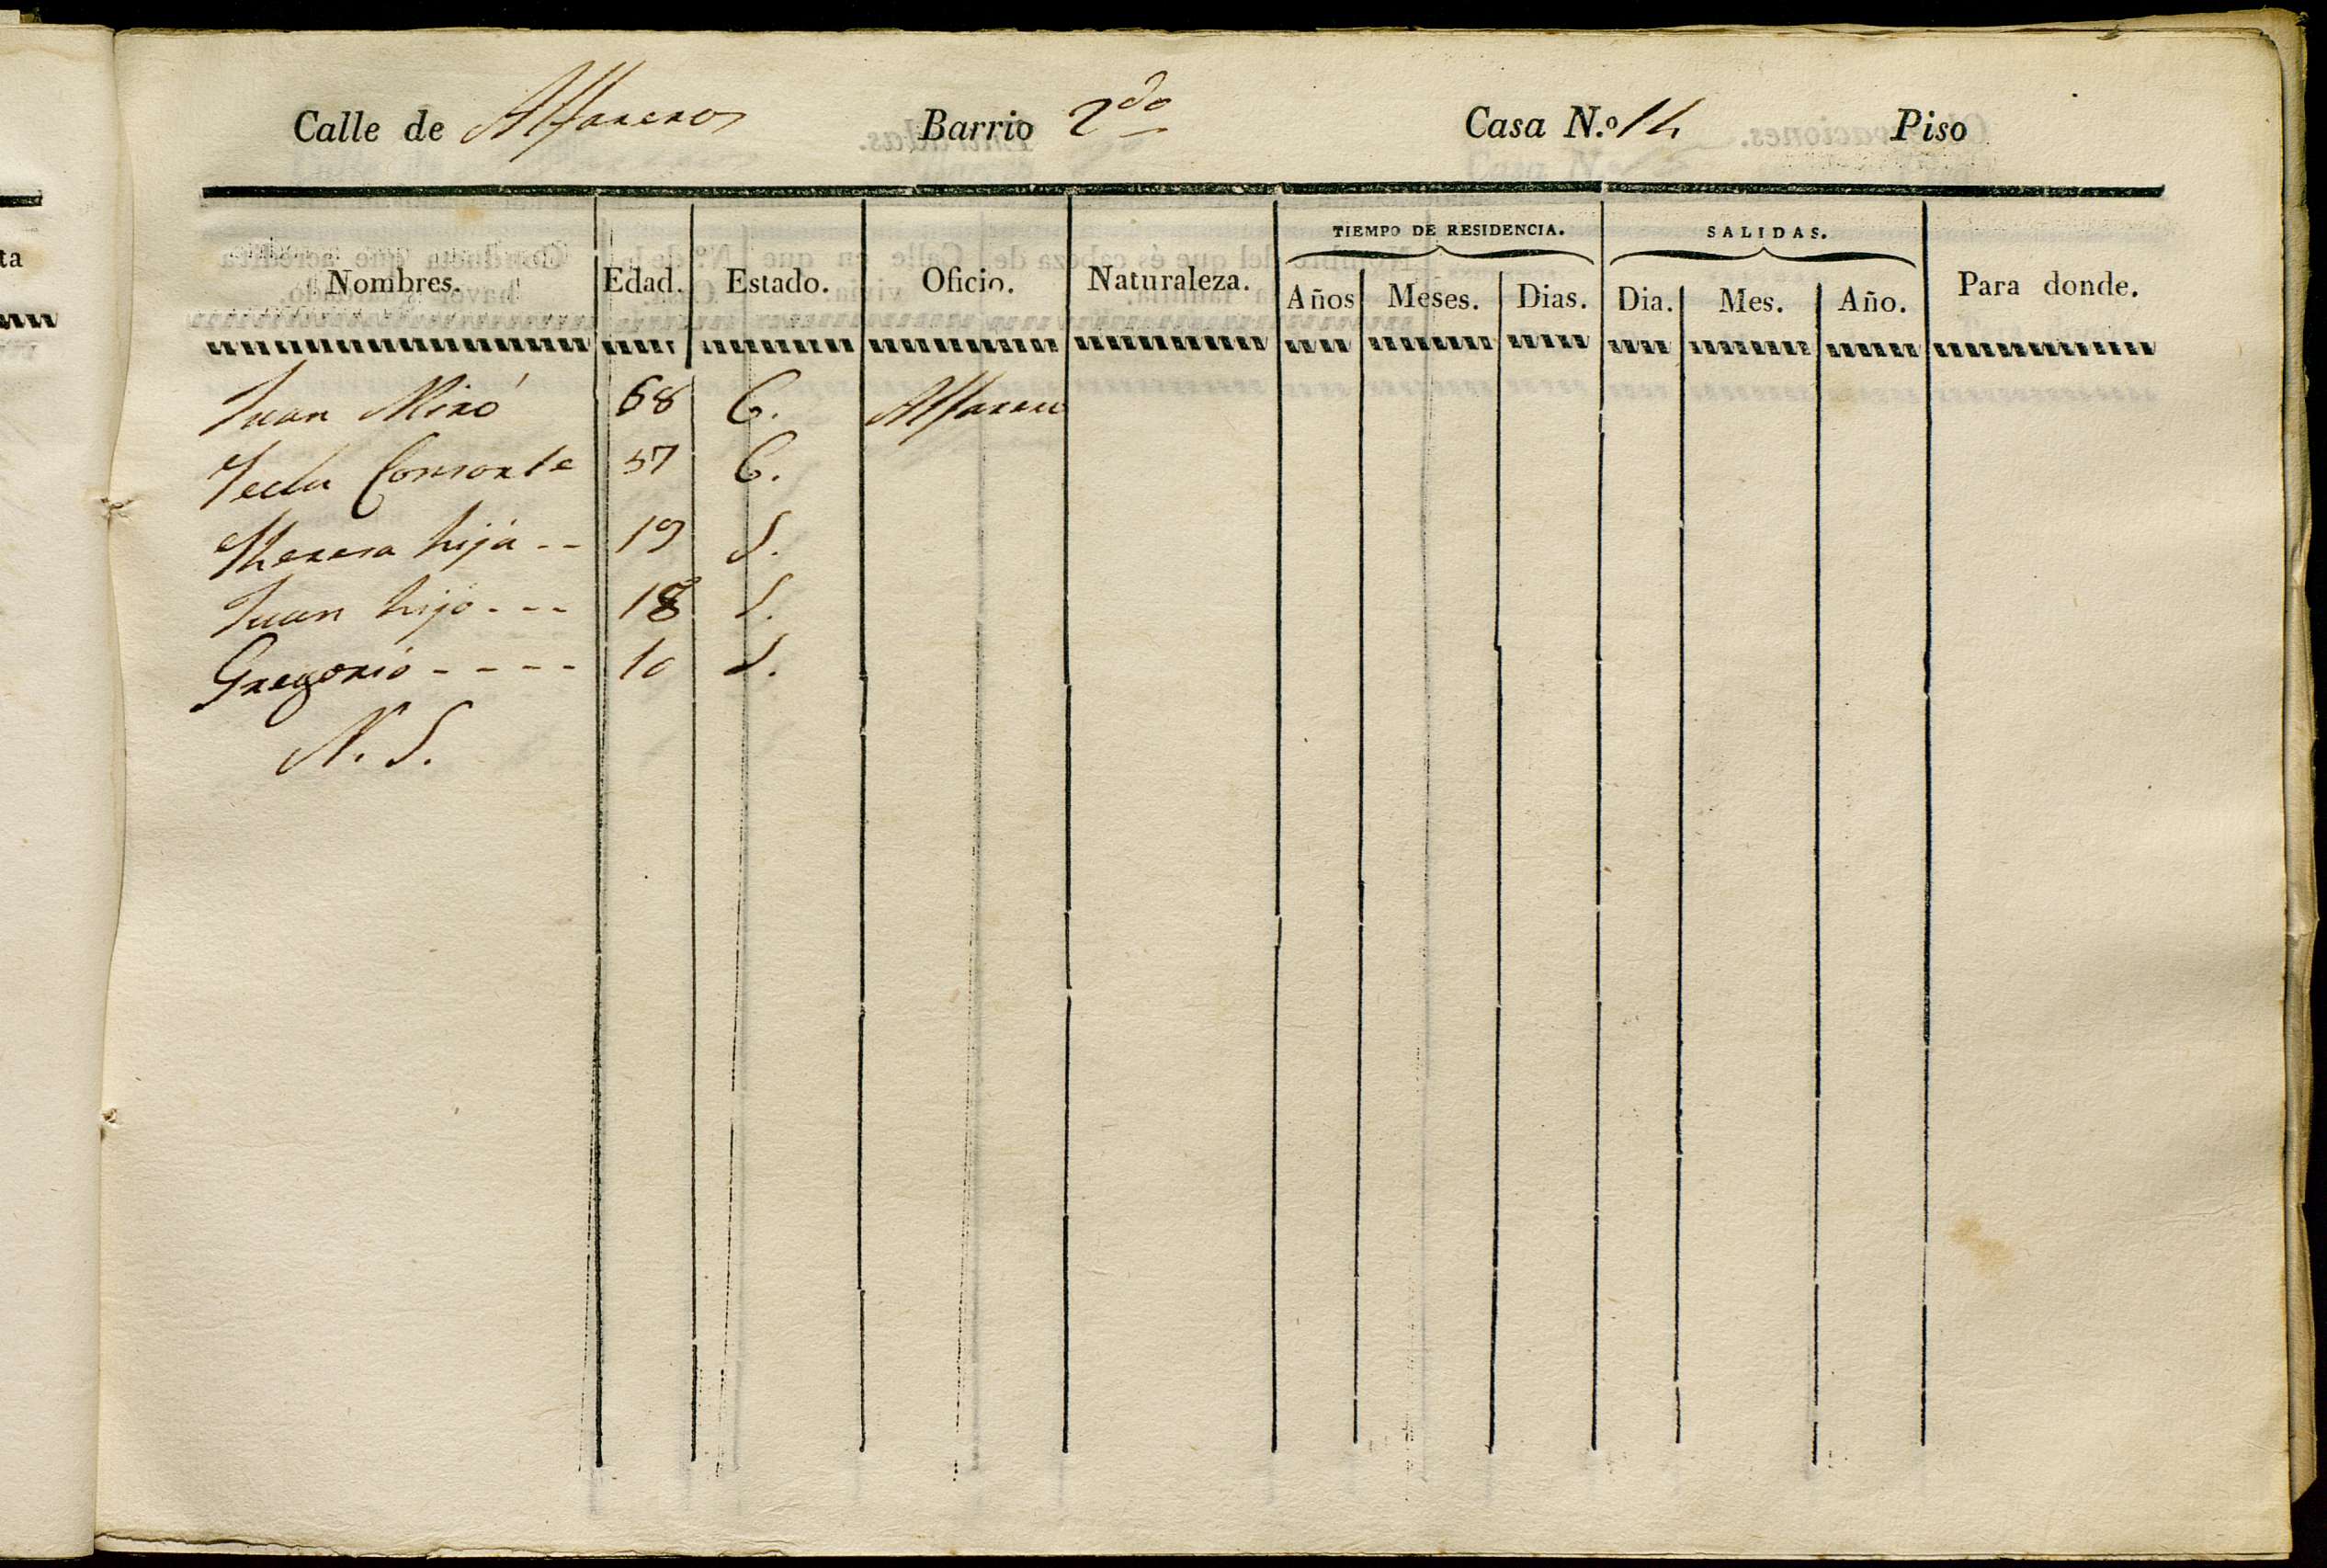 Calle de Alfareros Barrio 2do Casa N.o 14 Piso
TIEMPO DE RESIDENCIA. SALIDAS.
Nombres. Edad. Estado. Oficio. Naturaleza. Años Meses. Dias. Dia. Mes. Año. Para donde.
Juan Miró 68 C. Alfarero
Tecla Consorte 57 C.
Theresa hija -- 19 S.
Juan hijo --- 18 S.
Gregorio ---- 10 S.
N. S.
ta